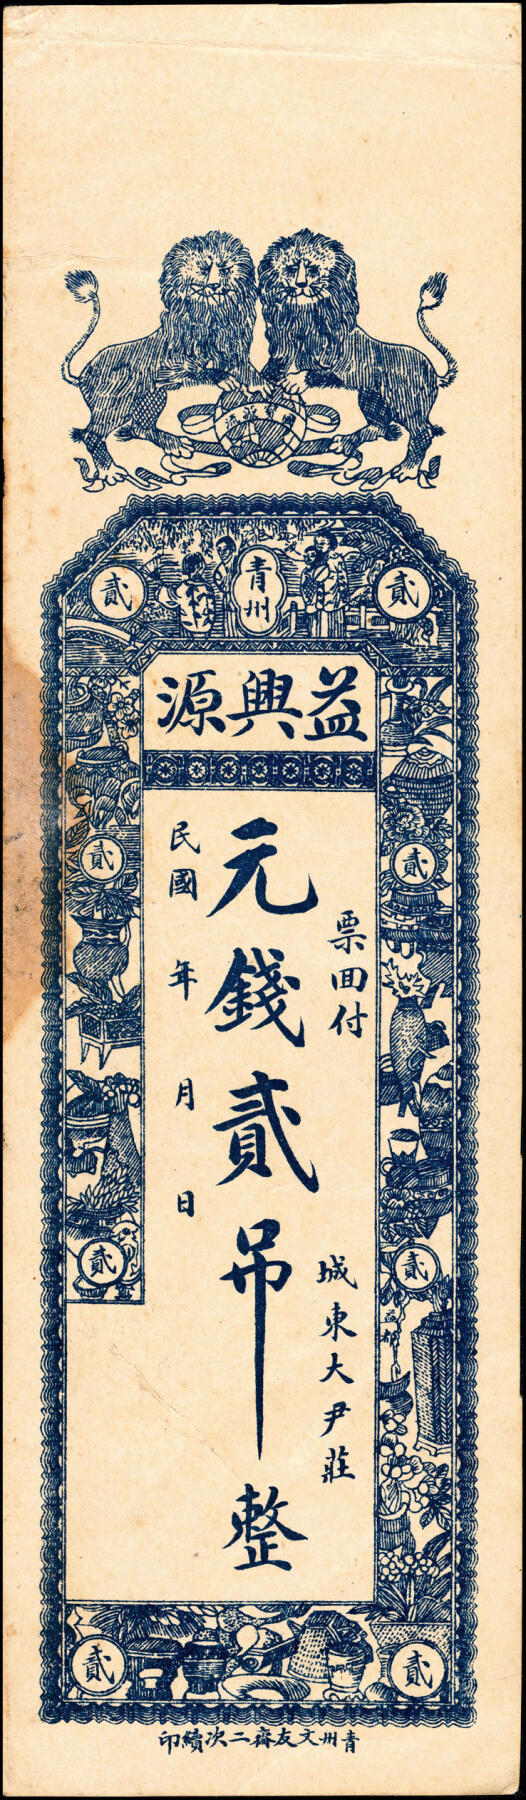 國寶源流
青州
貳
貳
益興源
票回付
城東大尹莊
元錢貳吊整
民國 年 月 日
貳
貳
貳
貳
益都
貳
貳
青州文友齋二次續印